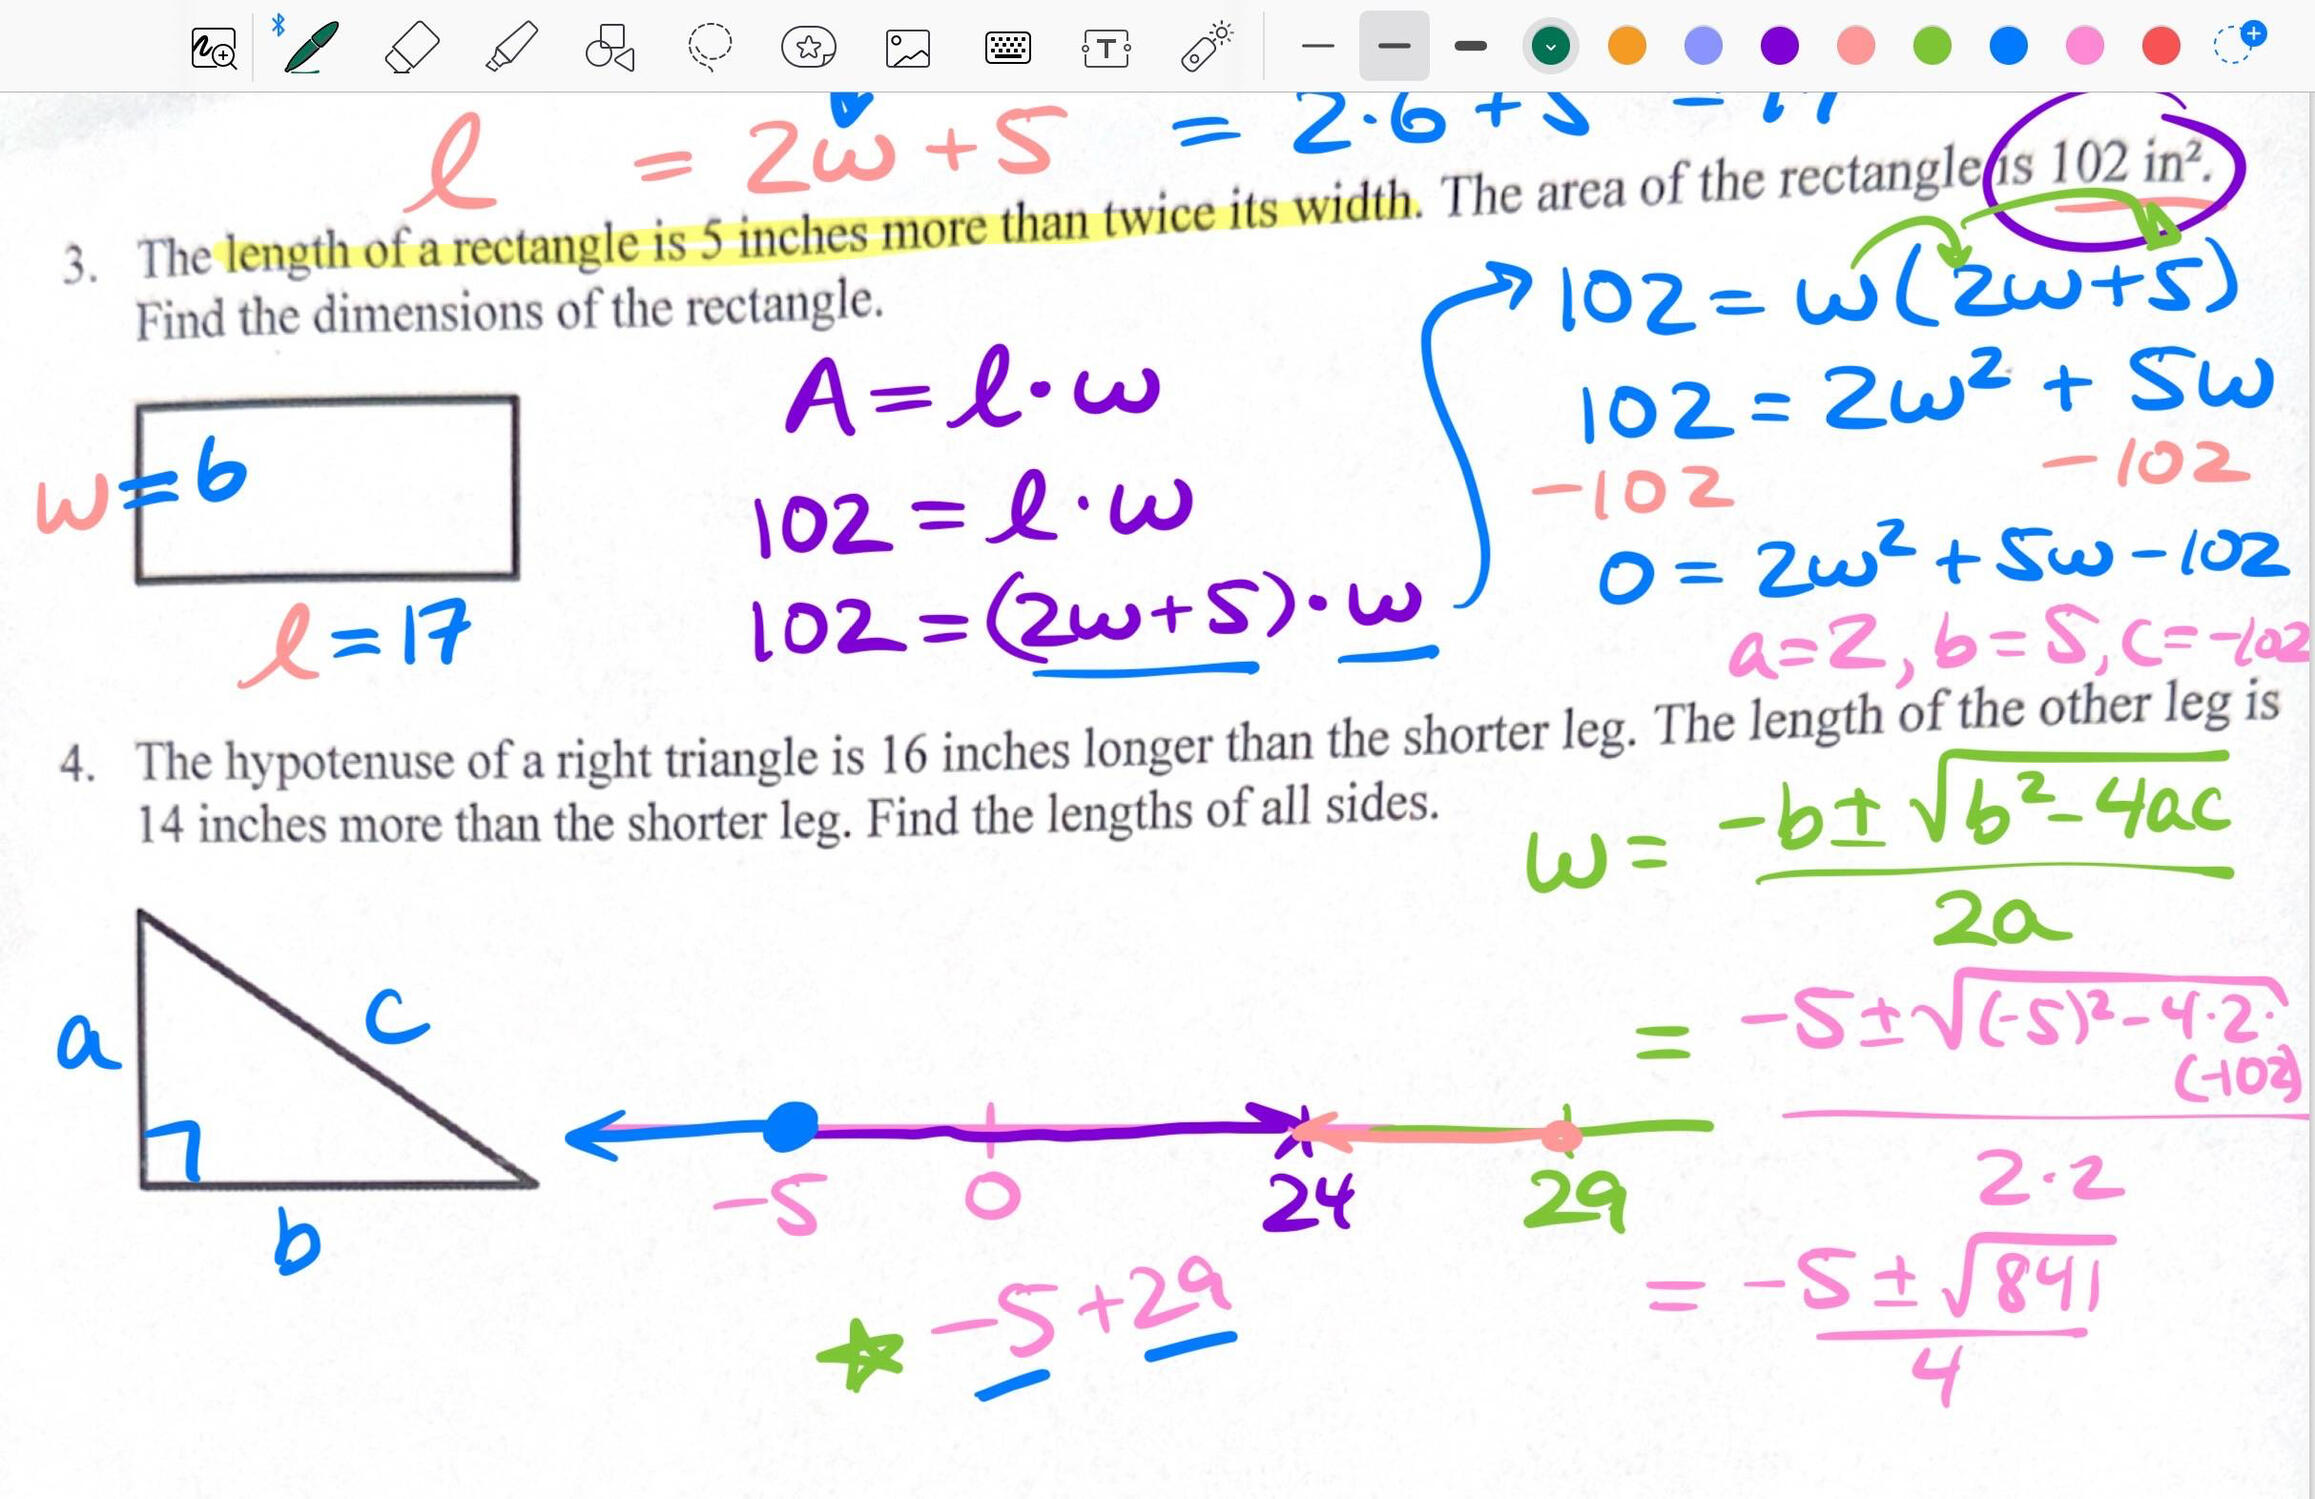 l = 2w + 5 = 2·6 + 5 = 17
3. The length of a rectangle is 5 inches more than twice its width. The area of the rectangle is 102 in².
Find the dimensions of the rectangle.
w = 6
l = 17
A = l · w
102 = l · w
102 = (2w+5) · w
102 = w(2w+5)
102 = 2w² + 5w
-102 -102
0 = 2w² + 5w - 102
a=2, b=5, c=-102
4. The hypotenuse of a right triangle is 16 inches longer than the shorter leg. The length of the other leg is
14 inches more than the shorter leg. Find the lengths of all sides.
a
c
b
w = -b ± √b² - 4ac
2a
= -5 ± √(-5)² - 4·2·
(-102)
2·2
= -5 ± √841
4
-5 0 24 29
-5 + 29